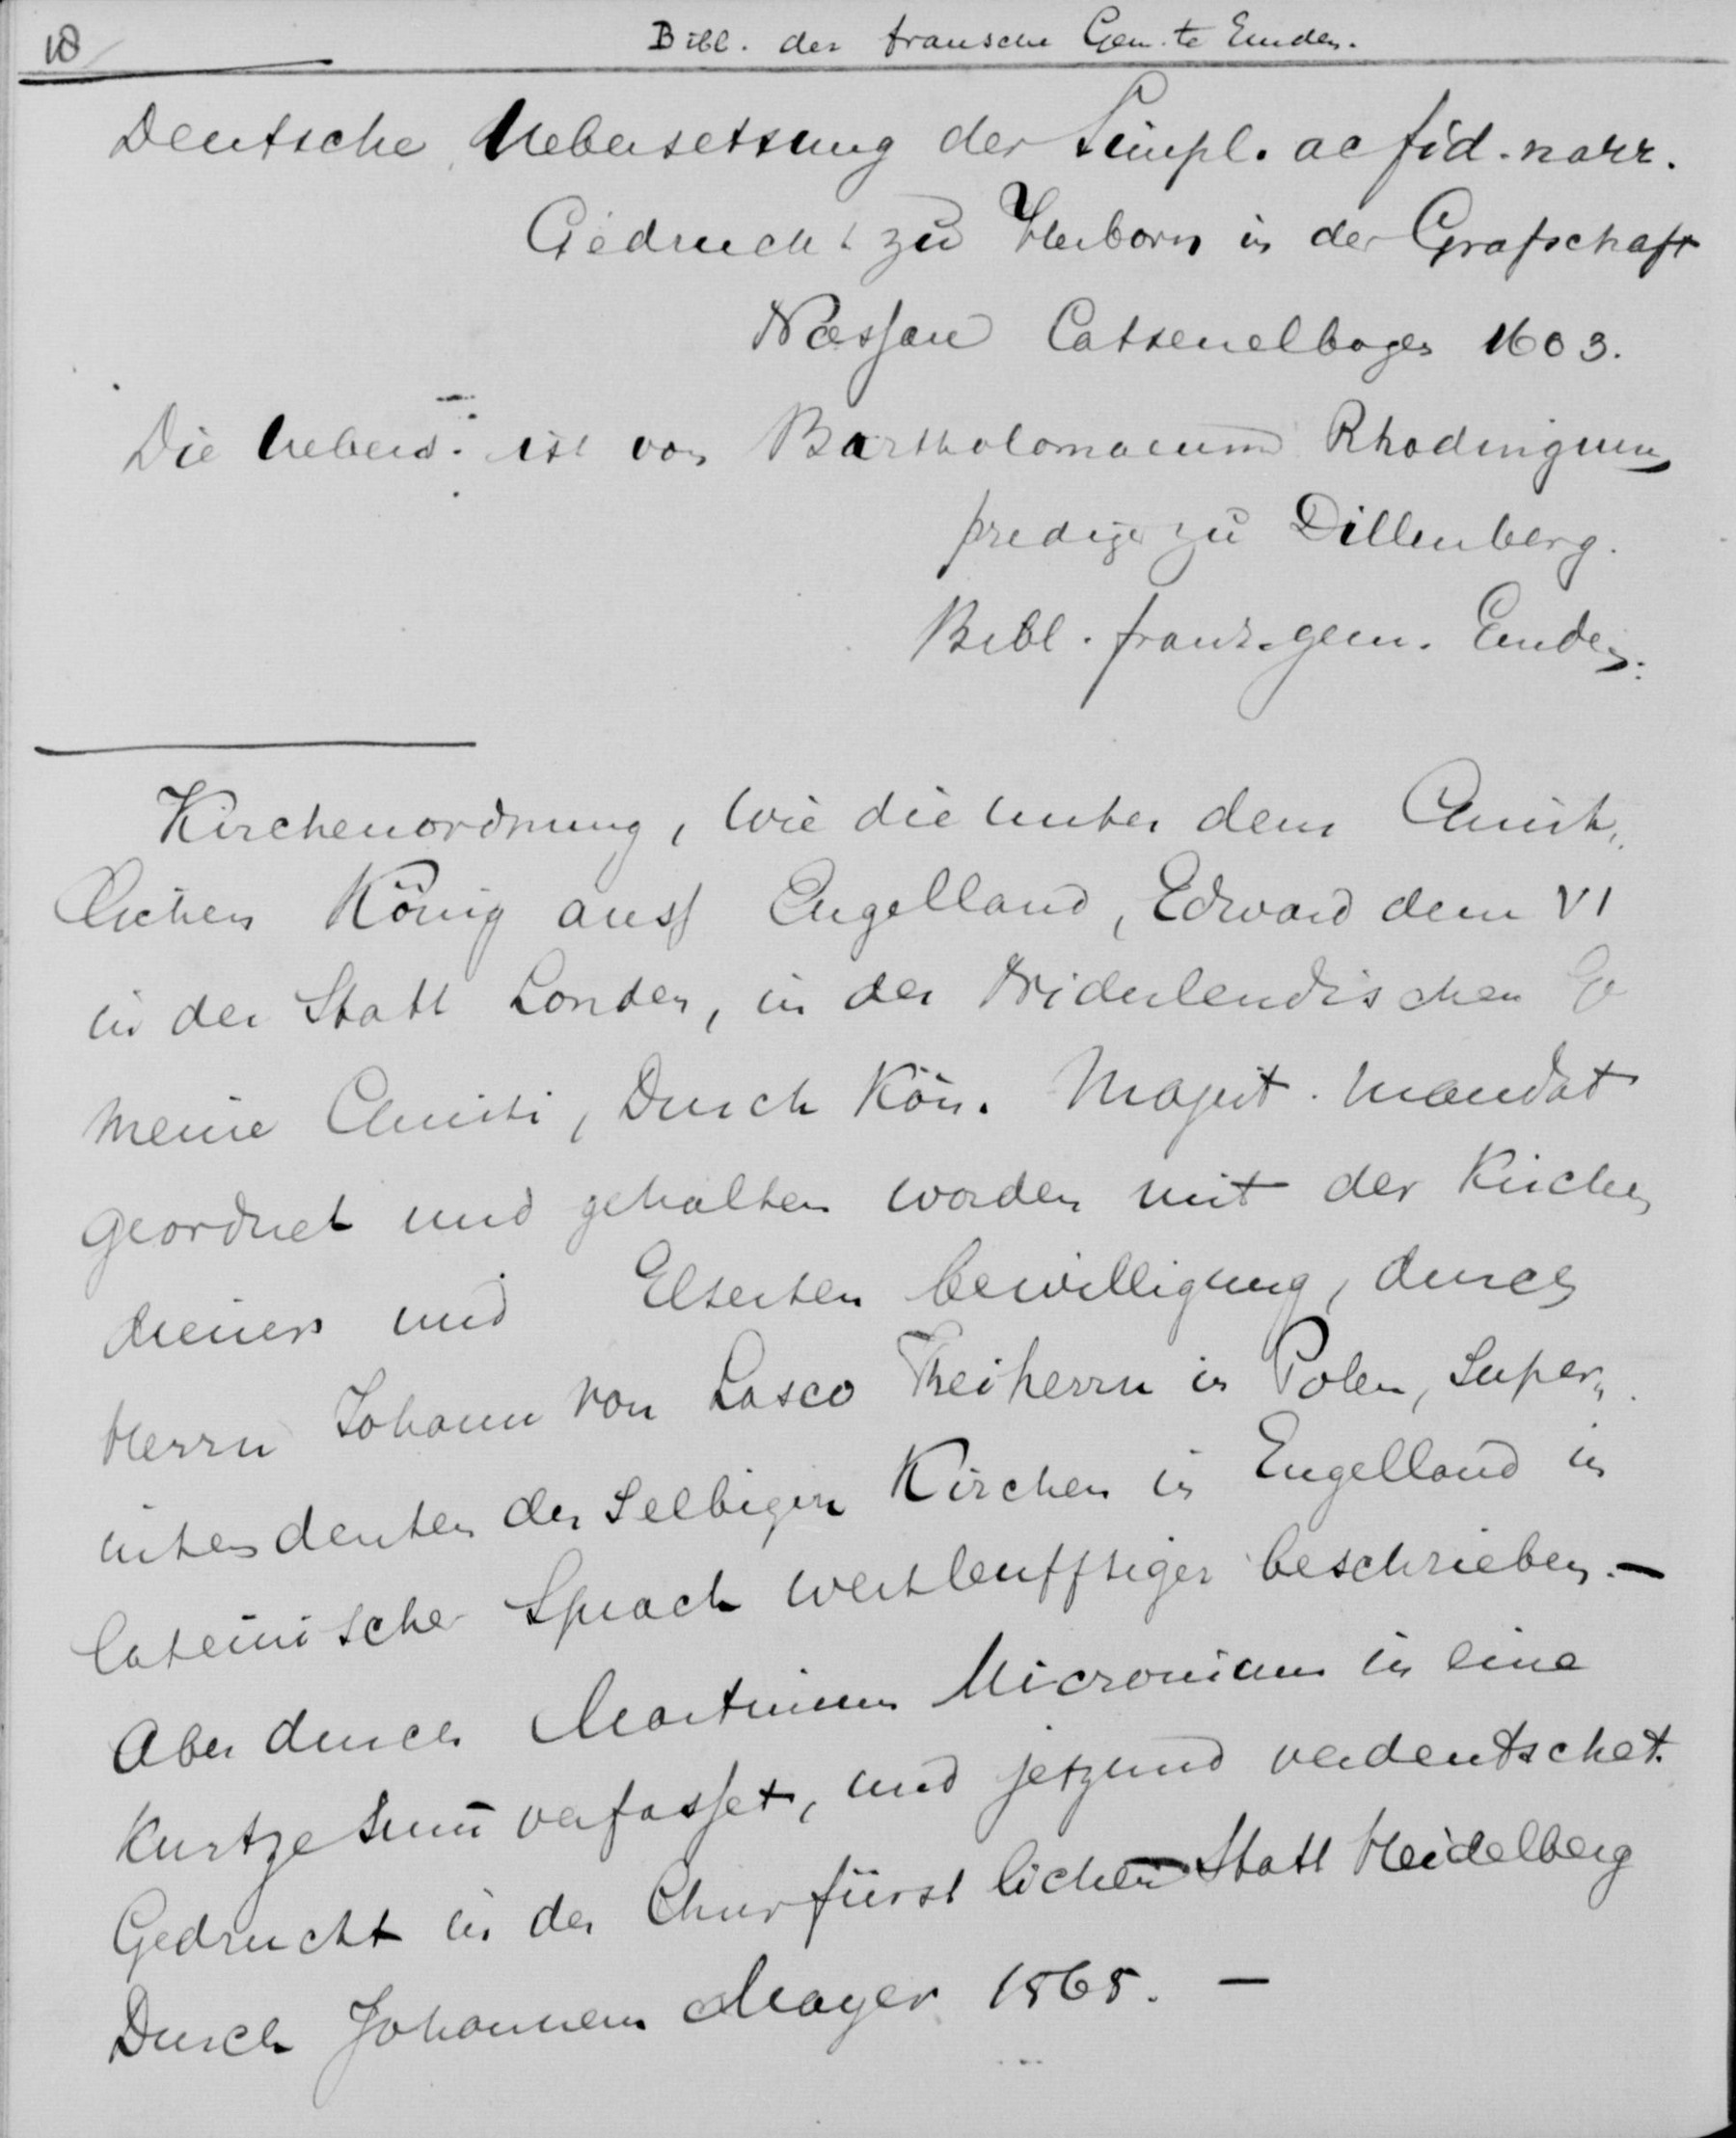 10
Bibl. der fransche Gem. te Emden.
Deutsche Uebersetzung der Simpl. ac fid. narr.
Gedruckt zu Herborn in der Grafschaft
Nassau Catzenelbogen 1603.
Die Uebers. ist von Bartholomaeum Rhodingum
prediger zu Dillenberg.
Bibl. franz. gem. Emden.
Kirchenordnung, wie die unter dem Christ„
lichen König auss Engelland, Edward dem VI
in der Statt Londen, in der Niderlendischen Ge
meine Christi, Durch Kön. Majest. mandat
geordnet und gehalten worden mit der Kirchen
diener und Eltesten bewilligung, durch
Herrn Johann von Lasco Freiherrn in Polen, Super„
intendenten der Selbigen Kirchen in Engelland in
lateinischer Sprach weitleufftiger beschrieben. —
Aber durch Martinum Micronium in eine
Kurtze Sum̄ verfasset, und jetzund verdeutschet.
Gedruckt in der Churfürstlichen Statt Heidelberg
Durch Johannem Mayer 1565. —